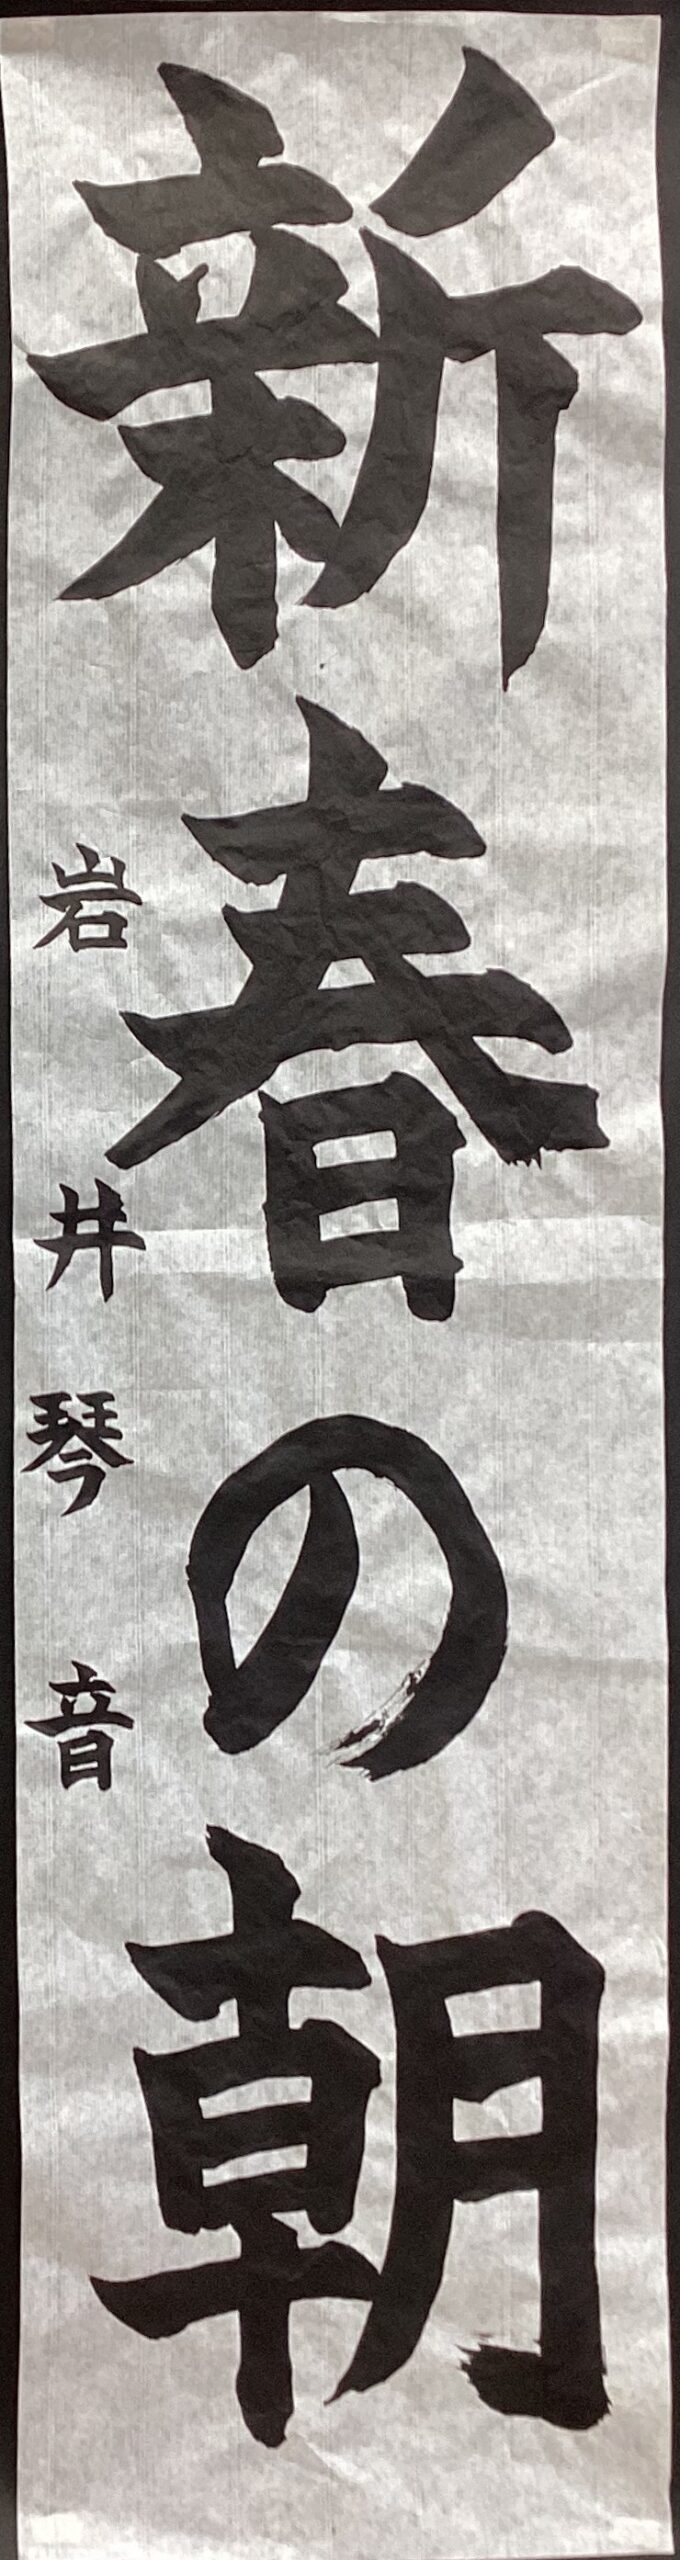 新春の朝
岩井琴音